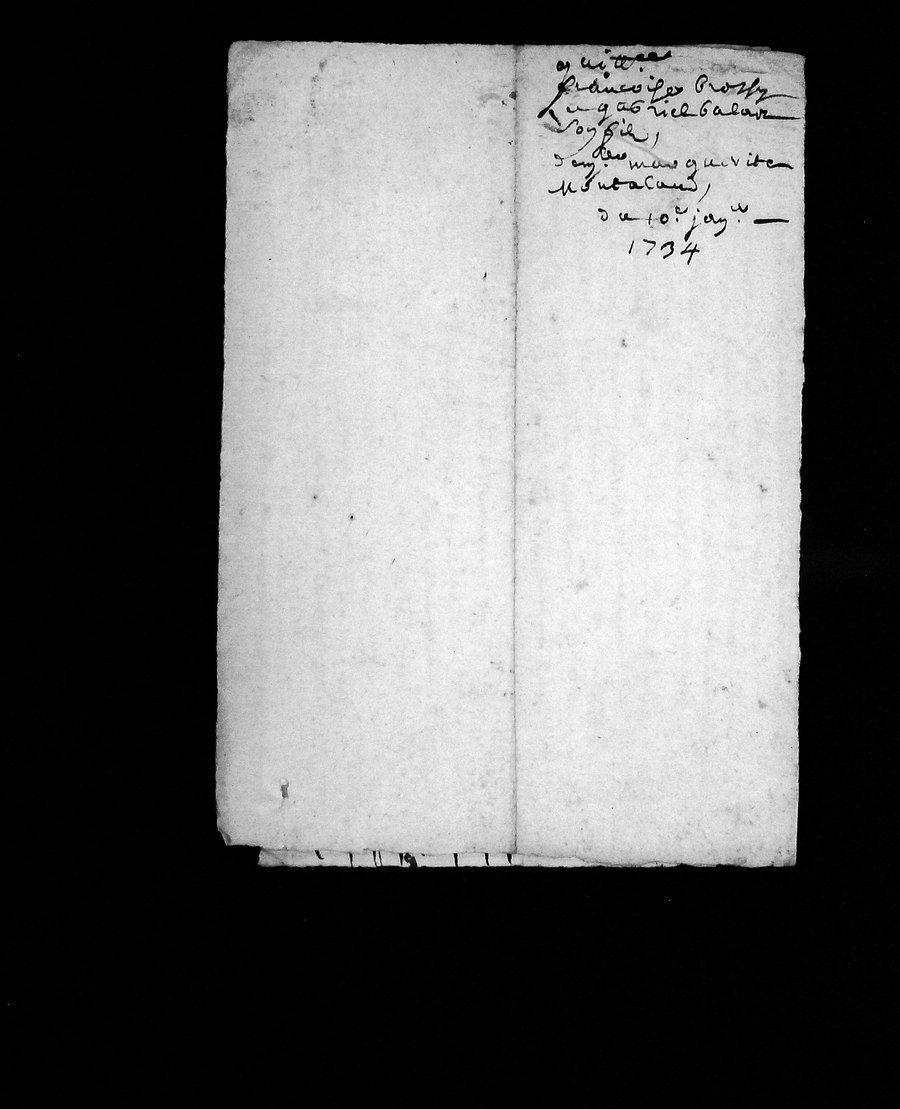 quitt.ce
francoises brossy
e gabriel balaor
son fils,
marguerite
Montaland,
du 10.e janv.er
1734